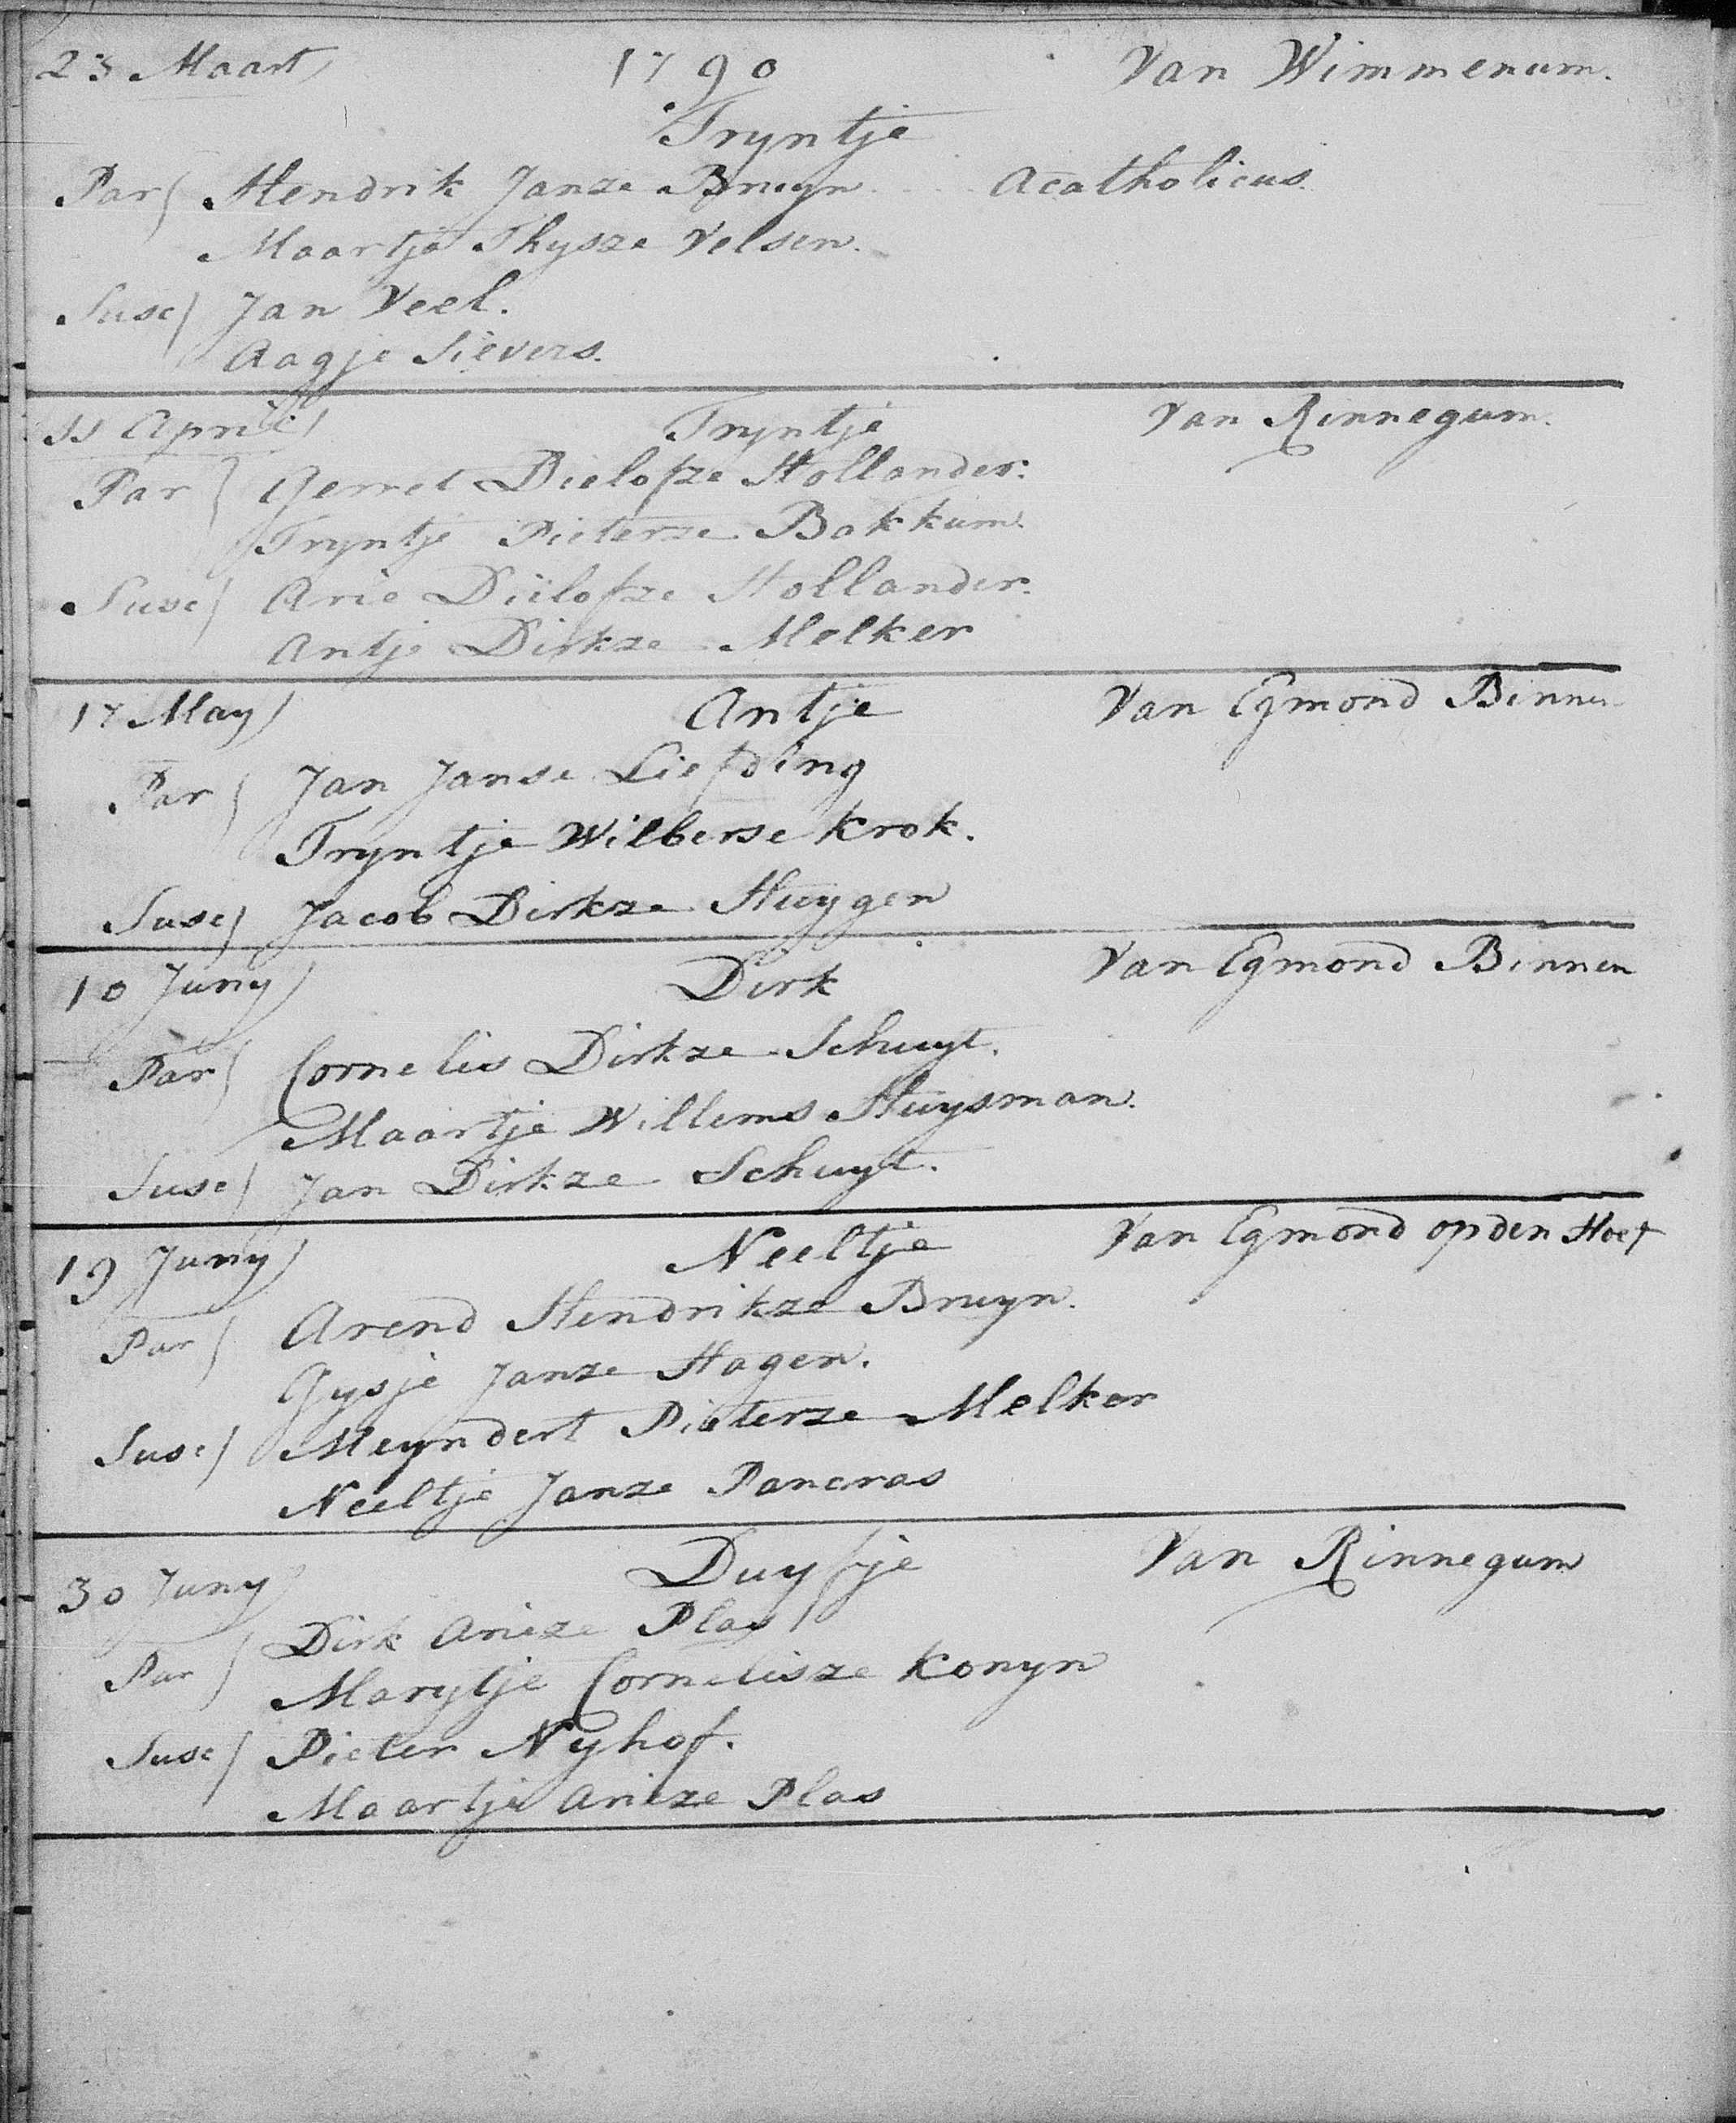 23 Maart 1790 Van Wimmenum.
Tryntje
Par) Hendrik Janze Bruyn. Acatholicus.
Maartje Thysze Velsen.
Susc) Jan Veel.
Aagje Sievers.
11 April) Tryntje Van Rinnegum.
Par) Gerret Dielofze Hollander.
Tryntje Pieterze Bakkum.
Susc) Arie Dielofze Hollander.
Antje Dirkze Melker
17 May) Antje Van Egmond Binnen
Par) Jan Janse Liefding
Tryntje Wilberse Krok.
Susc) Jacob Dirkze Huygen
10 Juny) Dirk Van Egmond Binnen
Par) Cornelis Dirkze Schuyt.
Maartje Willems Huysman.
Susc) Jan Dirkze Schuyt.
19 Juny) Neeltje Van Egmond op den Hoef
Par) Arend Hendrikze Bruyn.
Gysje Janze Hagen.
Susc) Meyndert Pieterze Melker
Neeltje Janze Pancras
30 Juny) Duyfje Van Rinnegum
Par) Dirk Arieze Plas
Marytje Cornelisze Konyn
Susc) Pieter Nyhof.
Maartje Arieze Plas